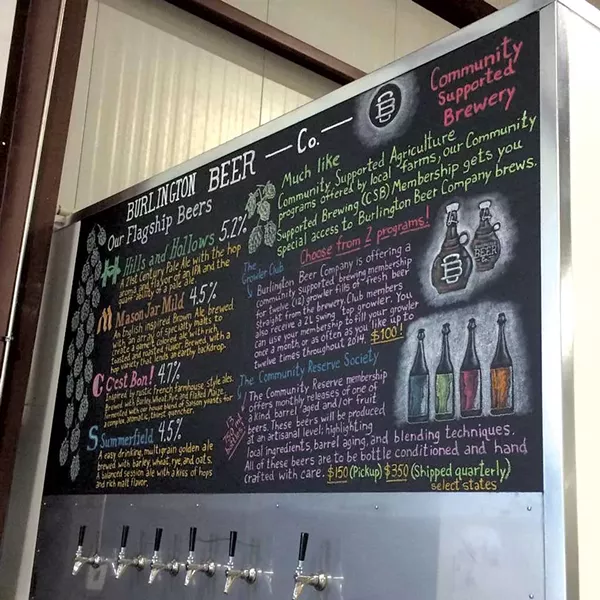 BURLINGTON BEER — Co. —
Our Flagship Beers
Hills and Hollows 5.2%
A 21st Century Pale Ale with the hop
aroma and flavor of an IPA and the
of a pale ale.
Mason Jar Mild 4.5%
An English inspired Brown Ale brewed
with an array of specialty malts to
create a garnet colored ale with rich,
toasted and roasted flavor. Brewed with a
hop variety that lends an earthy backdrop.
C'est Bon! 4.7%
Inspired by rustic French farmhouse style ales.
Brewed with Barley, Wheat, Rye, and Flaked Maize.
Fermented with our house blend of Saison yeasts for
a complex, aromatic, thirst quencher.
Summerfield 4.5%
A easy drinking, multigrain golden ale
brewed with barley, wheat, rye, and oats.
A balanced session ale with a kiss of hops
and rich malt flavor.
CB
Community
Supported
Brewery
Much like
Community Supported Agriculture
programs offered by local farms, our Community
Supported Brewing (CSB) Membership gets you
special access to Burlington Beer Company brews.
Choose from 2 programs!
The
Growler Club
Burlington Beer Company is offering a
community supported brewing membership
for twelve (12) growler fills of fresh beer
straight from the brewery. Club members
also receive a 2L swing top growler. You
can use your membership to fill your growler
once a month or as often as you like up to
twelve times throughout 2014. $100!
BEER
The Community Reserve Society
The Community Reserve membership
offers monthly releases of one of
a kind, barrel aged and/or fruit
beers. These beers will be produced
at an artisanal level; highlighting
local ingredients, barrel aging, and blending techniques.
All of these beers are to be bottle conditioned and hand
crafted with care. $150 (Pickup) $350 (Shipped quarterly)
select states